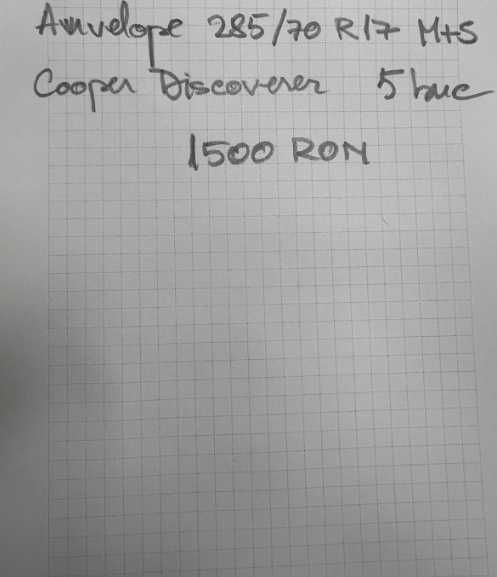 Anvelope 285/70 R17 M+S
Cooper Discoverer 5 buc
1500 RON